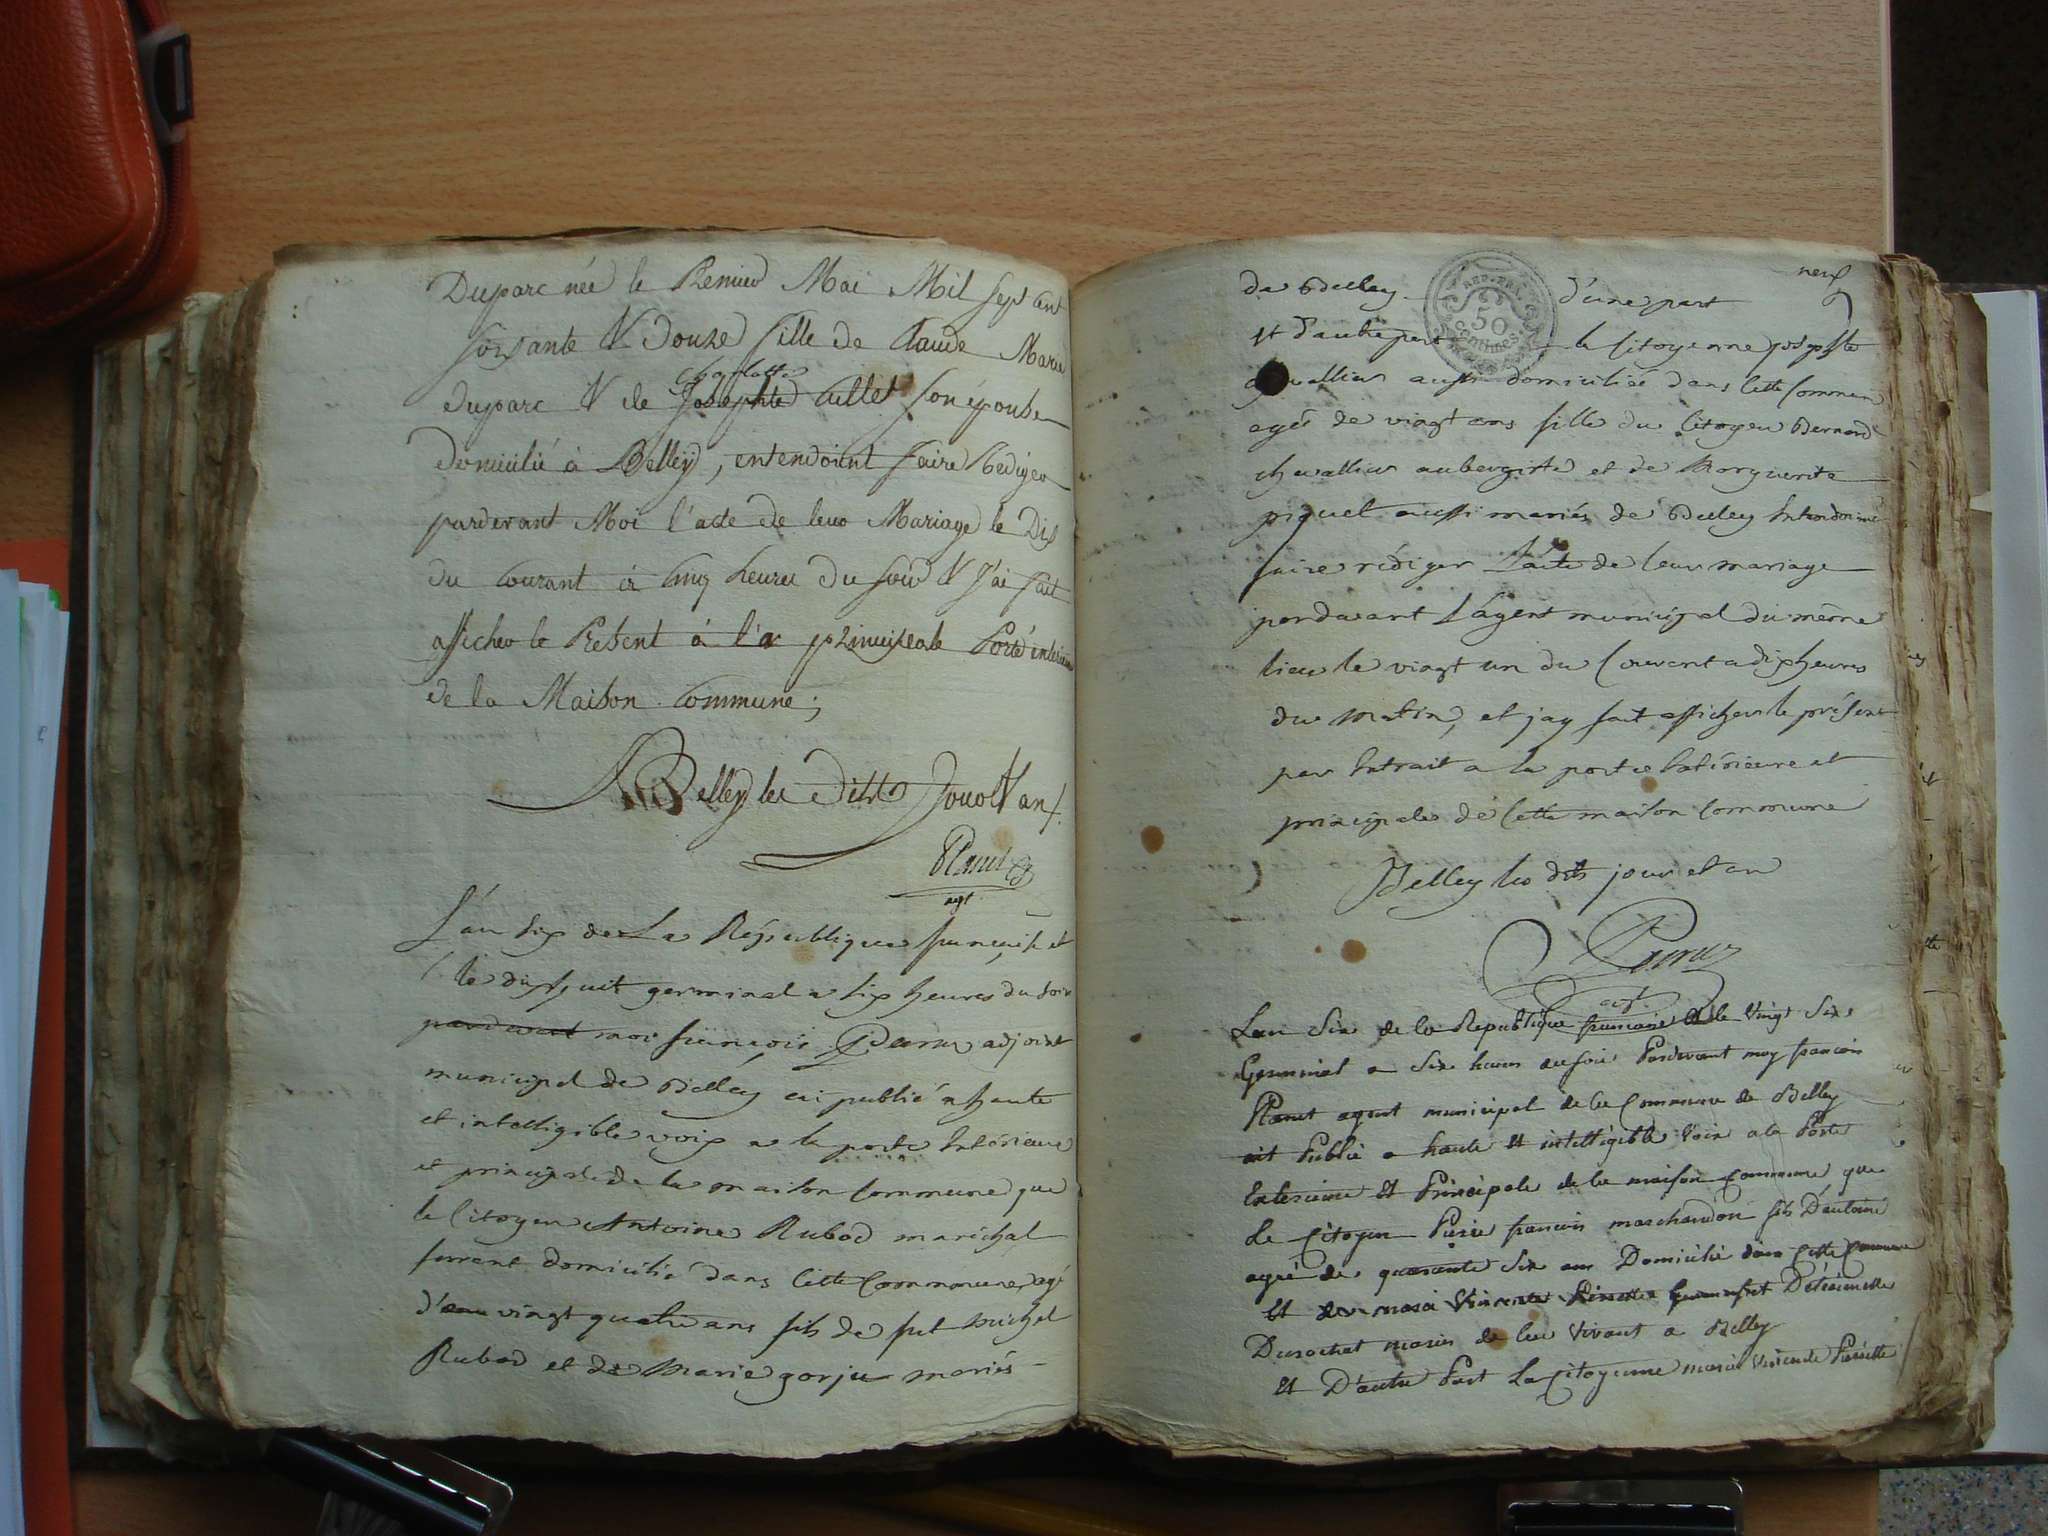 Duparc née le Premier Mai Mil Sept cent
soixante & douze fille de Claude Marie
Charlotte
duparc & de Josephte Cullet son épouse
domicilié à Belley, entendoint faire Rediger
pardevant Moi l'acte de leur Mariage le Dix
du Courant à Cinq heures du soir & J'ai fait
afficher le Present à l'a principale Porte interieure
de la Maison Commune;
A Belley les Dits Jour & an
agt
L'an Six de La République française et
le dix huit germinal a six heures du soir
pardevant moi françois adjoint
municipal de Belley ai publié a haute
et intelligible voix a la porte Extérieure
et principale de la maison Commune que
le Citoyen Antoine Rubod maréchal
ferrant domicilié dans Cette Commune, agé
d'eau vingt quatre ans fils de fut michel
Rubod et de Marie gorju mariés
neuf
de Belley d'une part
REP. FRA.
50
Centimes
et d'autre part la Citoyenne josephte
chevallier aussi domiciliée dans Cette Commun
agée de vingt ans fille du Citoyen Bernard
chevallier aubergiste et de Marguerite
piquet aussi mariés de Belley Entendoint
faire rédiger L'acte de leur mariage
pardavant L'agent municipal du même
lieu le vingt un du Courent a dix heures
du matin, et jay fait afficher le présent
par Extrait a la porte Extérieure et
principale de Cette maison Commune
Belley les dits jour et an
agt.
Lan Six de la Republique francaise & le Vingt Six
Germinal a Six heures du soir Pardevant moy francois
agent municipal de la Commune de Belley
ait Publié a haute Et intelligible Voix a la Porte
Exterieure Et Principale de la maison Commune que
Le Citoyen Pierre francois marchandon fils D'antoine
agé de quarante Six ans Domicilié dans Cette Commune
Et de
Durochat mariés de leur Vivant a Belley
Et D'autre Part La Citoyenne marie